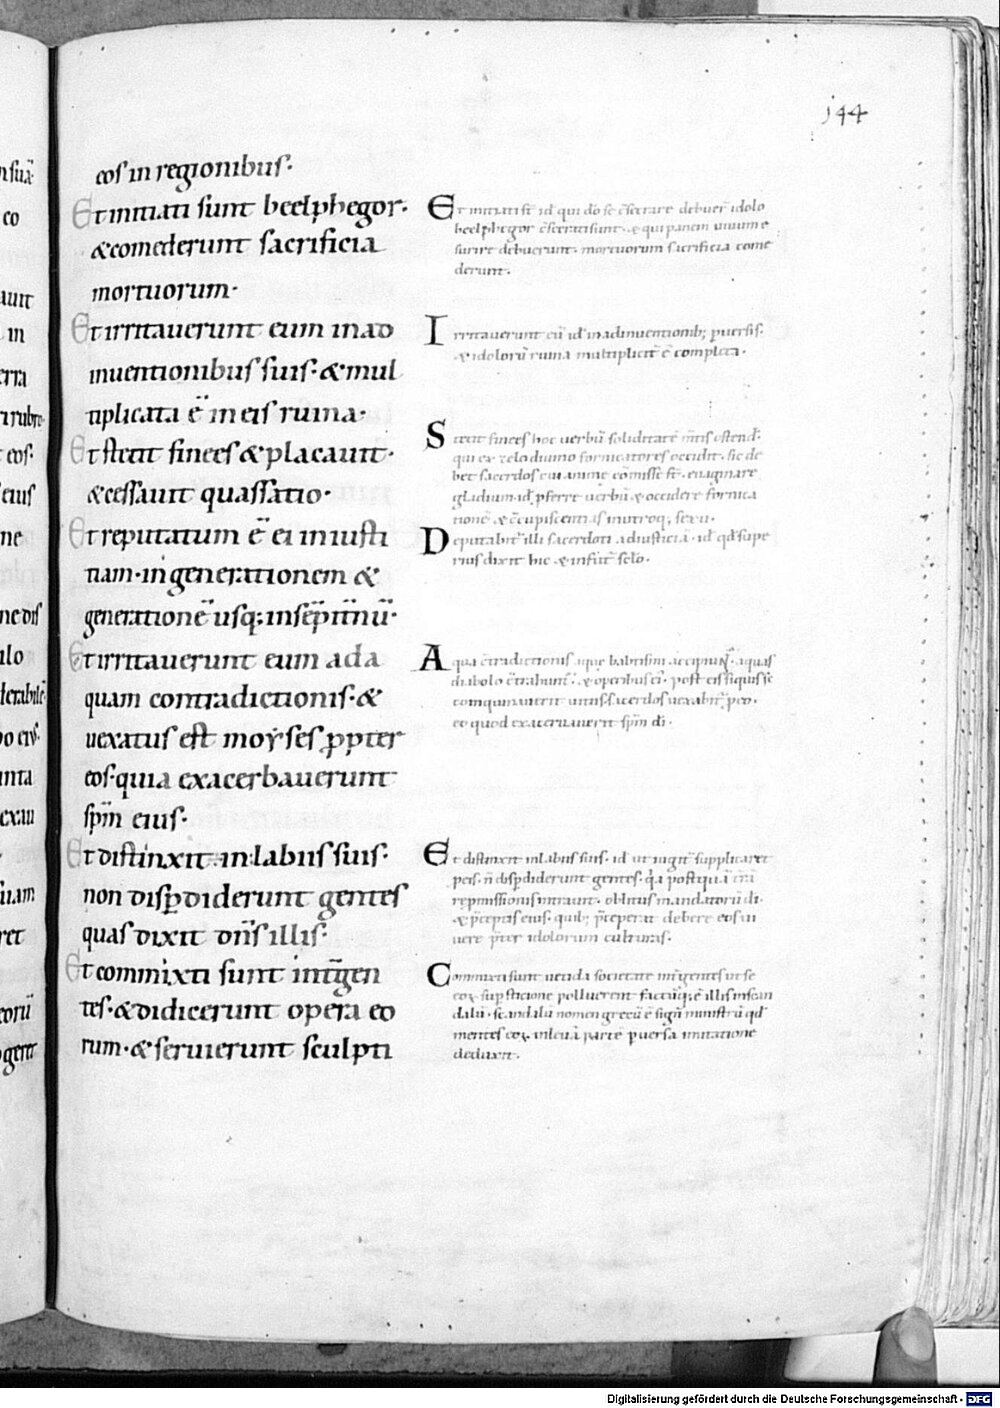 144
eos in regionibus·
Et initiati sunt beelphegor·
& comederunt sacrificia
mortuorum·
Et irritauerunt eum in ad
inuentionibus suis· & mul
tiplicata ē in eis ruina·
Et stetit finees & placauit·
& cessauit quassatio·
Et reputatum ē ei in iusti
tiam· in generationem &
generationē usq; in sēpit̄nū·
Et irritauerunt eum ad a
quam contradictionis· &
uexatus est moyses ꝓpter
eos· quia exacerbauerunt
sp̄m eius·
Et distinxit in labiis suis·
non disꝑdiderunt gentes
quas dixit dn̄s illis·
Et commixti sunt int̄ gen
tes· & didicerunt opera eo
rum· & seruierunt sculpti
Et initiati st̄ id qui dō se c̄secrare debuer̄ idolo
beelphegor c̄secrati sunt· & qui panem uiuum e
surire debuerunt· mortuorum sacrificia come
derunt·
Irritauerunt eū id in adinuentionib; ꝑuersis·
& idolorū ruina multiplicit̄ ē completa·
Stetit finees hoc uerbū soliditatē mtis ostend̄·
qui ex zelo diuino fornicatores occidit· sic de
bet sacerdos cui anime cōmisse st̄· euaginare
gladium id ꝓferre uerbū & occidere fornica
tionē & c̄cupiscentias in utroq; sexu·
Deputabit̄ illi sacerdoti ad iusticiā· id qd̄ supe
rius dixit hic & in futur̄ sclo·
Aqua c̄tradictionis aque babtismi accipiun̄t· aquas
diabolo c̄trahunt· & operibus ei· post eis siquis se
coinquinauerit uitiis· sacerdos uexabit̄ ꝓ eo·
eo quod exaceruauerit sp̄m dī·
Et distinxit in labiis suis· id ut iugit̄ supplicaret
ꝓ eis· n̄ disꝑdiderunt gentes· qa postquā t̄rā
repmissionis intrauit· oblitus mandatorū dī
& p̄ceptis eius· quib; p̄ceperat debere eos ui
uere p̄ter idolorum culturas·
Commixti sunt uetida societate int̄ gentes ut se
eoꝝ supsticione polluerent factūq; ē illis in scan
dalū· scandalū nomen grecū ē signū ministrū qd̄
mentes eoꝝ in leuā partē ꝑuersa imitatione
deduxit·
Digitalisierung gefördert durch die Deutsche Forschungsgemeinschaft - DFG